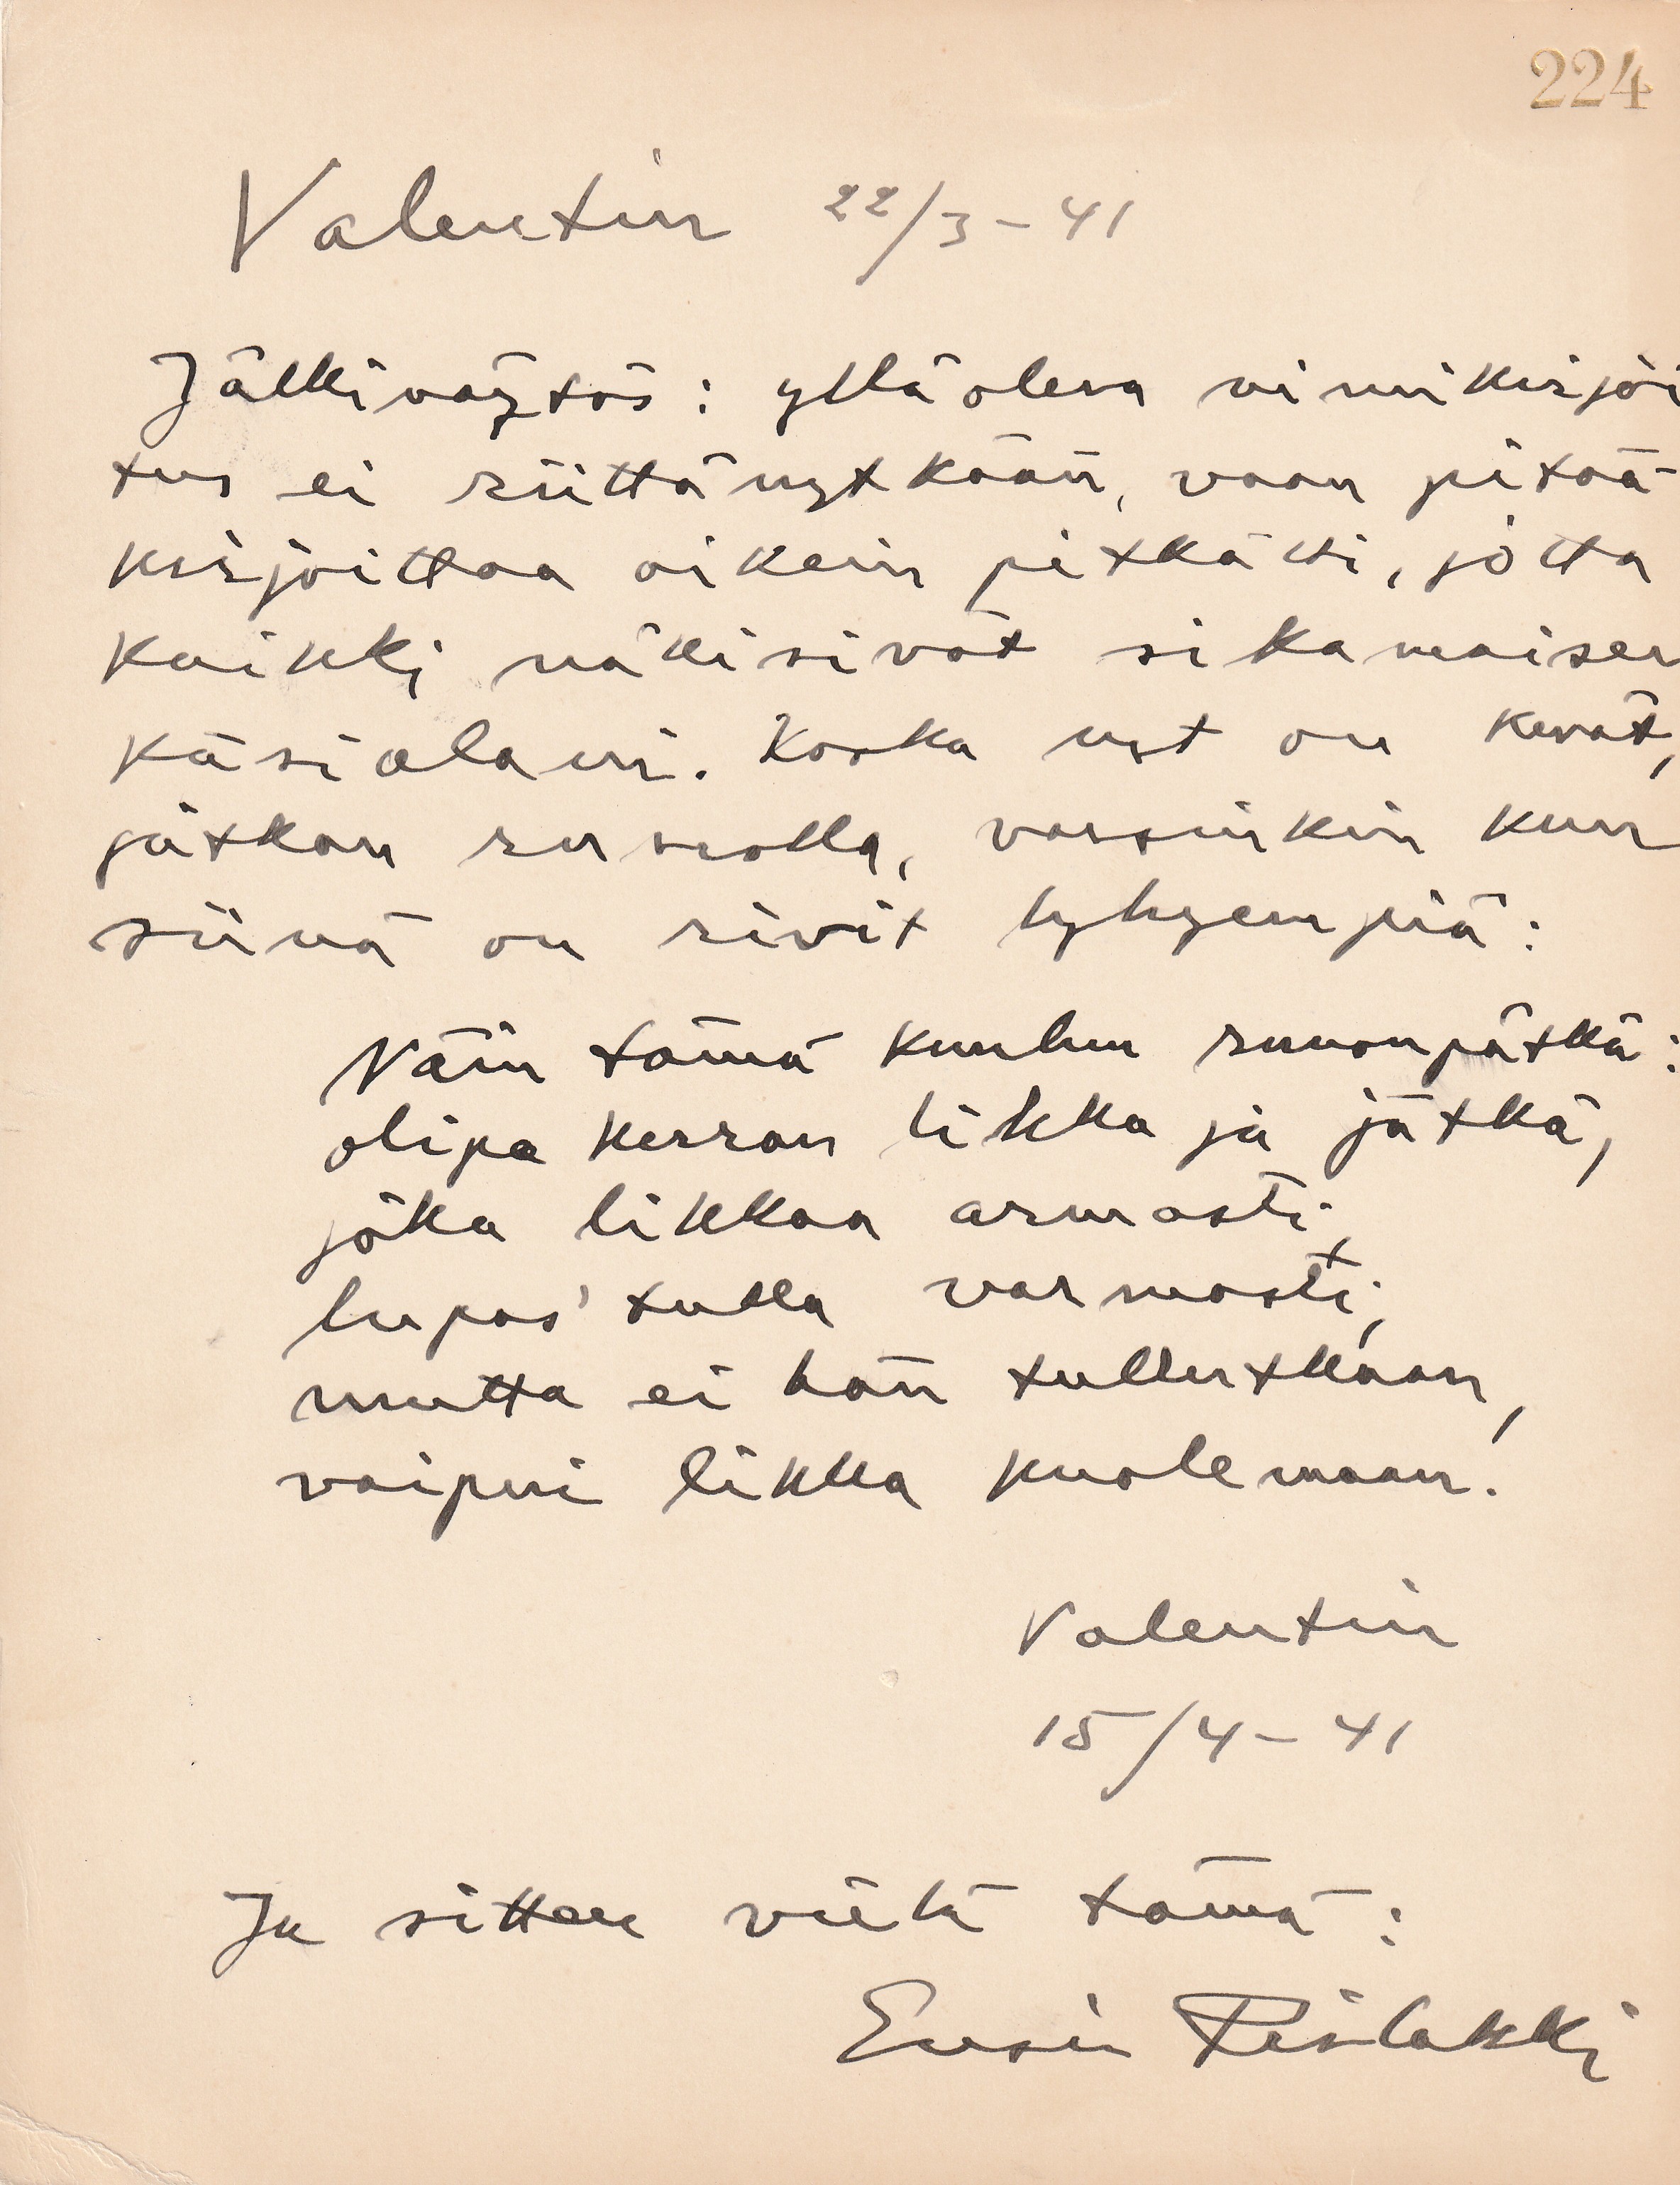 224
Valentin 22/3 - 41
Jälkinäytös: ylläoleva nimikirjoi
tus ei riittänytkään, vaan pitää
kirjoittaa oikein pitkästi, jotta
kaikki näkisivät sikamaisen
käsialani. Koska nyt on kevät,
jatkan runolla, varsinkin kun
siinä on rivit lyhyempiä:
Näin tämä kuuluu runonpätkä:
olipa kerran likka ja jätkä,
joka likkaa armasti,
lupas' tulla varmasti,
mutta ei hän tullutkaan,
vaipui likka kuolemaan.
Valentin
15/4 - 41
Ja sitten vielä tämä:
Ensio Rislakki